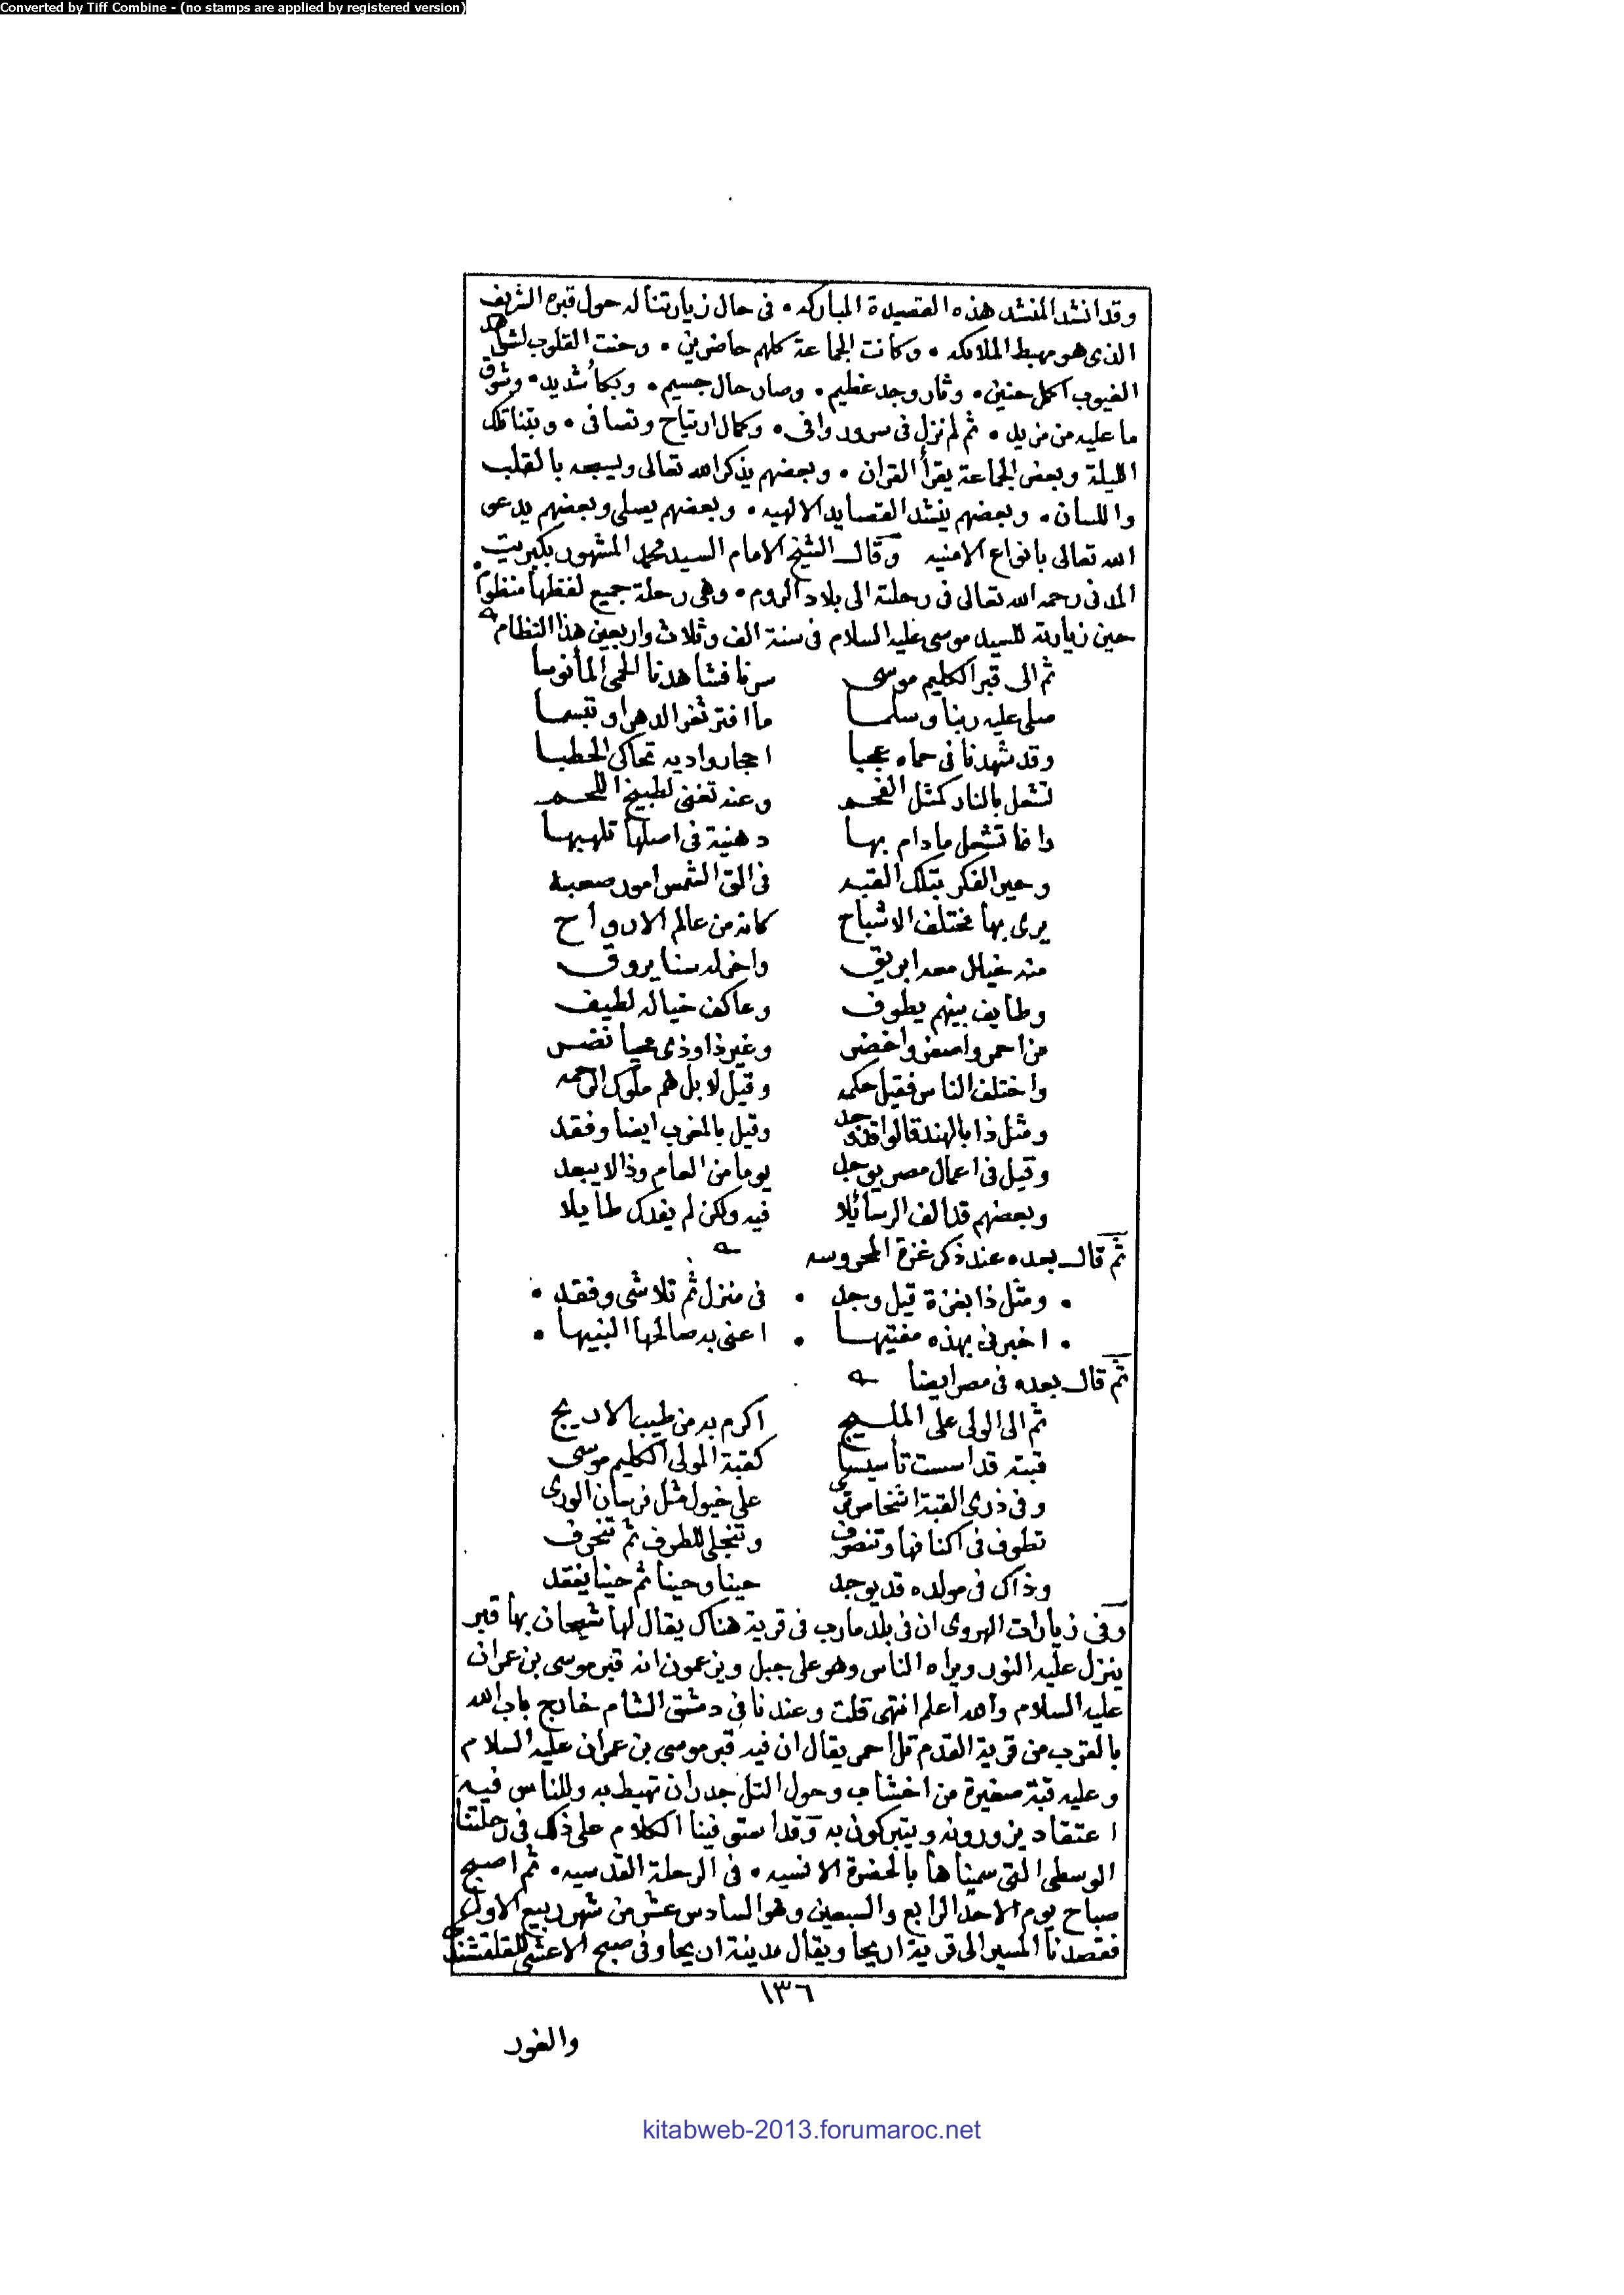 Converted by Tiff Combine - (no stamps are applied by registered version)
وقد انشد المنشد هذه القصيدة المباركه • فى حال زيارتنا له حول قبره الشريف
الذى هو مهبط الملائكه • وكانت الجماعة كلهم حاضرين • وحنت القلوب لشواهد
الغيوب اكمل حنين • وثار وجد عظيم • وصار حال جسيم • وبكاء شديد • وشوق
ما عليه من مزيد • ثم لم نزل فى سرور وافى • وكمال ارتياح وتصافى • وبتنا تلك
الليلة وبعض الجماعة يقرأ القران • وبعضهم يذكر الله تعالى ويسبحه بالقلب
واللسان • وبعضهم ينشد القصايد الالهيه • وبعضهم يصلى وبعضهم يدعو
الله تعالى بانواع الامنيه وقال الشيخ الامام السيد محمد المشهور بكبريت
المدنى رحمه الله تعالى فى رحلته الى بلاد الروم • وهى رحلة جميع لفظها منظوم
حين زيارته للسيد موسى عليه السلام فى سنة الف وثلاث واربعين هذا النظام
ثم الى قبر الكليم موسى سرنا فشاهدنا الحمى المأنوسا
صلى عليه ربنا وسلما ما افتر ثغر الدهر او تبسما
وقد شهدنا فى حماه عجبا احجار واديه تحاكى الحطبا
تشعل بالنار كمثل الفحم وعنه تغنى لطبيخ اللحم
وانما تشعل ما دام بها دهنية فى اصلها تلهبها
وحير الفكر بتلك القبه فى الق الشمس امور صعبة
يرى بها مختلف الاشباح كانه من عالم الارواح
منه خيال معه ابريق واخر له سنا يروق
وطايف بينهم يطوف وعاكف خياله لطيف
من احمر واصفر واخضر وغير ذا وذى محيا نضر
واختلف الناس فقيل حكمه وقيل لا بل هم ملوك الرحمه
ومثل ذا بالهند قالوا قد وجد وقيل بالمغرب ايضا وفقد
وقيل فى اعمال مصر يوجد يوما من العام وذا لا يبعد
وبعضهم قد الف الرسائلا فيه ولكن لم يفدك طايلا
ثم قال بعده عند ذكر غزة المحروسه
• ومثل ذا بغزة قيل وجد • فى منزل ثم تلاشى وفقد •
• اخبرنى بهذه مفتيها • اعنى به صالحها النبيها •
ثم قال بعده فى مصر ايضا
ثم الى الولى على المليج اكرم به من طيب الاريج
قبته قد اسست تأسيسا كقبة المولى الكليم موسى
وفى ذرى القبة اشخاص ترى على خيول مثل فرسان الورى
تطوف فى اكنافها وتنصرف وتنجلى للطرف ثم تنحرف
وذاك فى مولده قد يوجد حينا وحينا ثم حينا يفقد
وفى زيارات الهروى ان فى بلد مارب فى قرية هناك يقال لها شيحان بها قبر
ينزل عليه النور ويراه الناس وهو على جبل ويزعمون انه قبر موسى بن عمران
عليه السلام والله اعلم انتهى قلت وعندنا فى دمشق الشام خارج باب الله
بالقرب من قرية القدم تل احمر يقال ان فيه قبر موسى بن عمران عليه السلام
وعليه قبة صغيرة من اخشاب وحول التل جدران تهيط به وللناس فيه
اعتقاد يزورونه ويتبركون به وقد استوفينا الكلام على ذلك فى رحلتنا
الوسطى التى سميناها بالحضرة الانسيه • فى الرحلة القدسيه • ثم اصبح
صباح يوم الاحد الرابع والسبعين وهو السادس عشر من شهر ربيع الاول
فقصدنا المسير الى قرية اريحا ويقال مدينة اريحا وفى صبح الاعشى للقلقشندى
١٣٦
والغور
kitabweb-2013.forumaroc.net